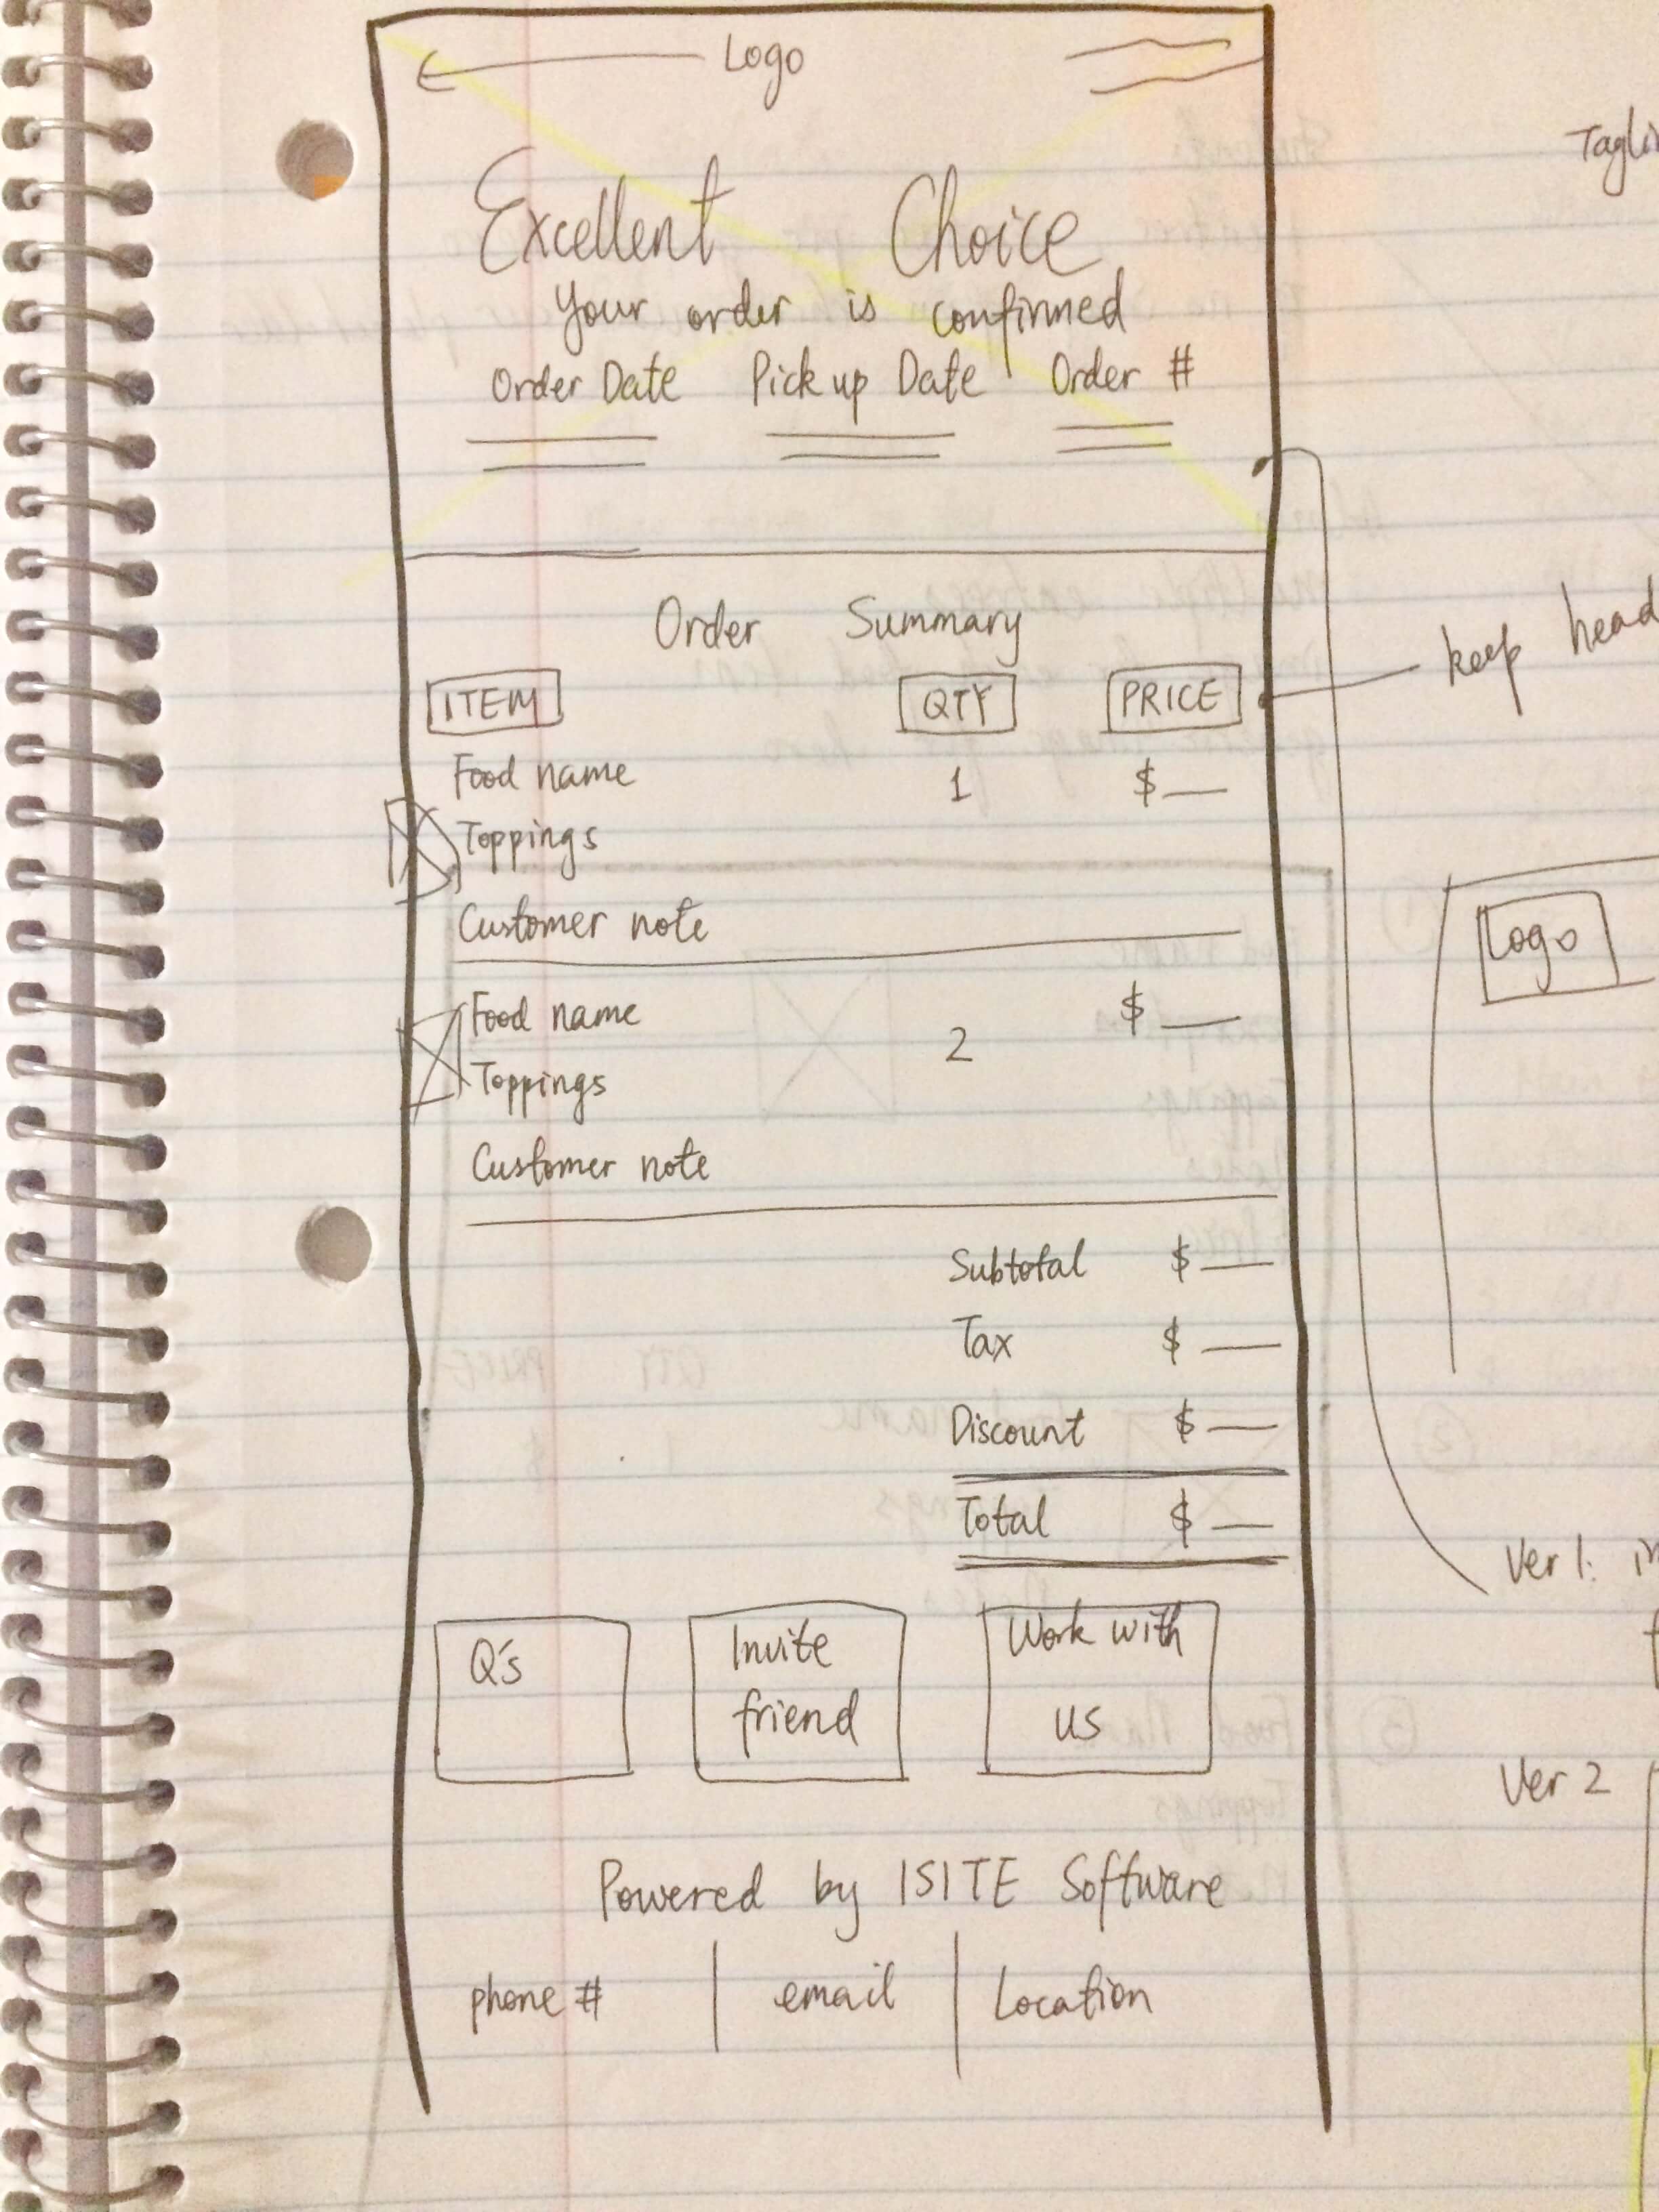 Logo
Excellent Choice
Your order is confirmed
Order Date Pick up Date Order #
Order Summary
ITEM QTY PRICE
Food name 1 $
Toppings
Customer note
Food name 2 $
Toppings
Customer note
Subtotal $
Tax $
Discount $
Total $
Q's Invite friend Work with us
Powered by ISITE Software
phone # | email | Location
keep head
Logo
Ver 1:
Ver 2